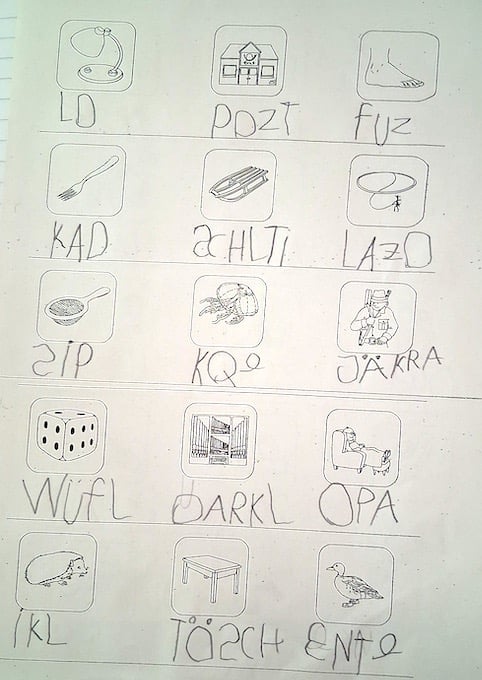 LD POZT FUZ
KAD SCHLTI LAZO
SIP KQe JÄKRA
WÜFL OARKL OPA
IKL TÖSCH ENTe